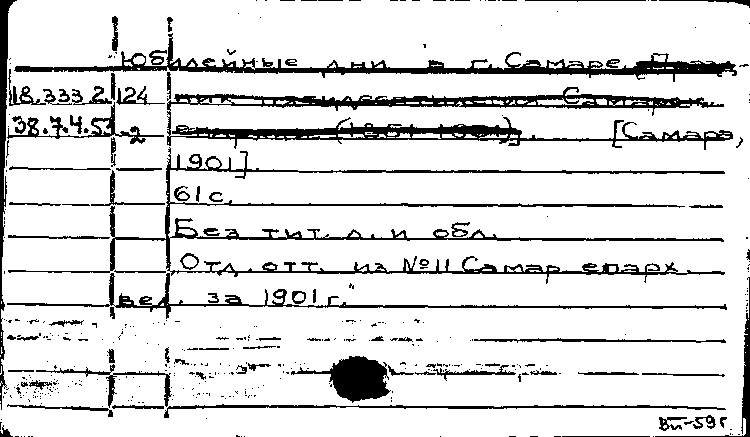 Юбилейные дни в г. Самаре.
18.333.2.124
38.7.4.53 -2 [Самара,
1901].
61 с.
Без тит. л. и обл.
Отд. отт. из №11 Самар епарх.
вед. за 1901 г."
59 г